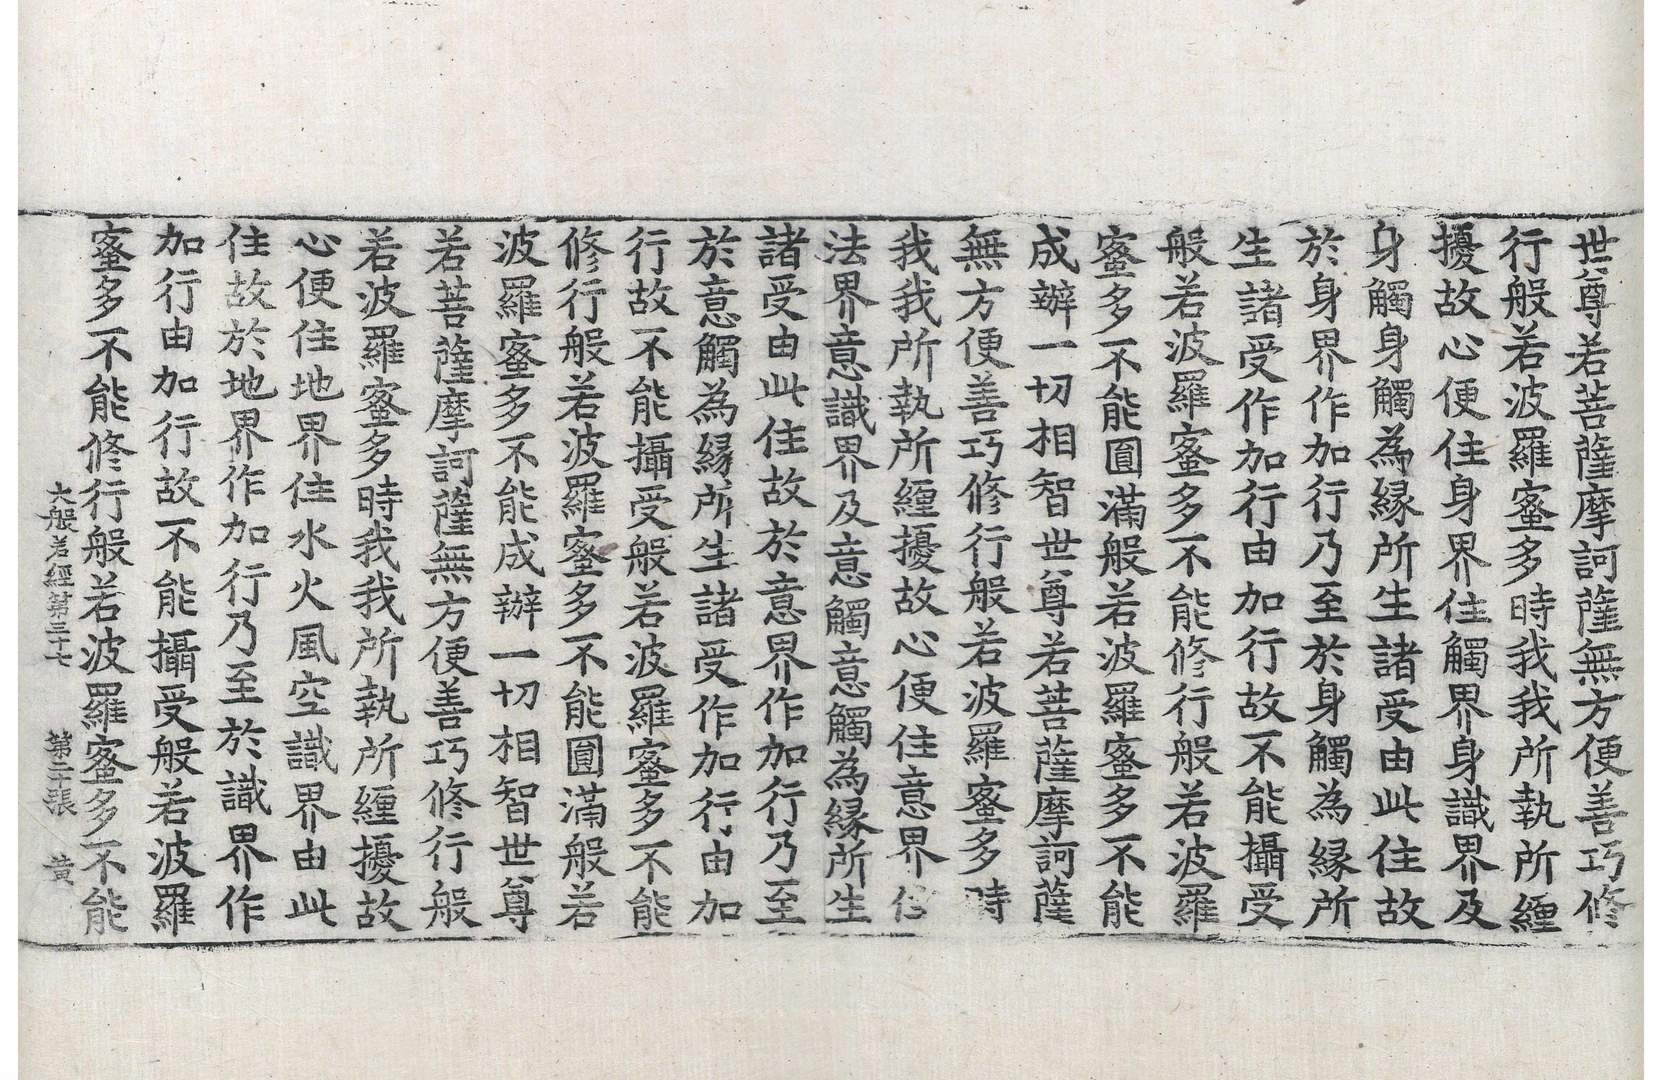 世尊若菩薩摩訶薩無方便善巧修
行般若波羅蜜多時我我所執所纏
擾故心便住身界住觸界身識界及
身觸身觸為緣所生諸受由此住故
於身界作加行乃至於身觸為緣所
生諸受作加行由加行故不能攝受
般若波羅蜜多不能修行般若波羅
蜜多不能圓滿般若波羅蜜多不能
成辦一切相智世尊若菩薩摩訶薩
無方便善巧修行般若波羅蜜多時
我我所執所纏擾故心便住意界住
法界意識界及意觸意觸為緣所生
諸受由此住故於意界作加行乃至
於意觸為緣所生諸受作加行由加
行故不能攝受般若波羅蜜多不能
修行般若波羅蜜多不能圓滿般若
波羅蜜多不能成辦一切相智世尊
若菩薩摩訶薩無方便善巧修行般
若波羅蜜多時我我所執所纏擾故
心便住地界住水火風空識界由此
住故於地界作加行乃至於識界作
加行由加行故不能攝受般若波羅
蜜多不能修行般若波羅蜜多不能
大般若經第三十七 第二十張 黄